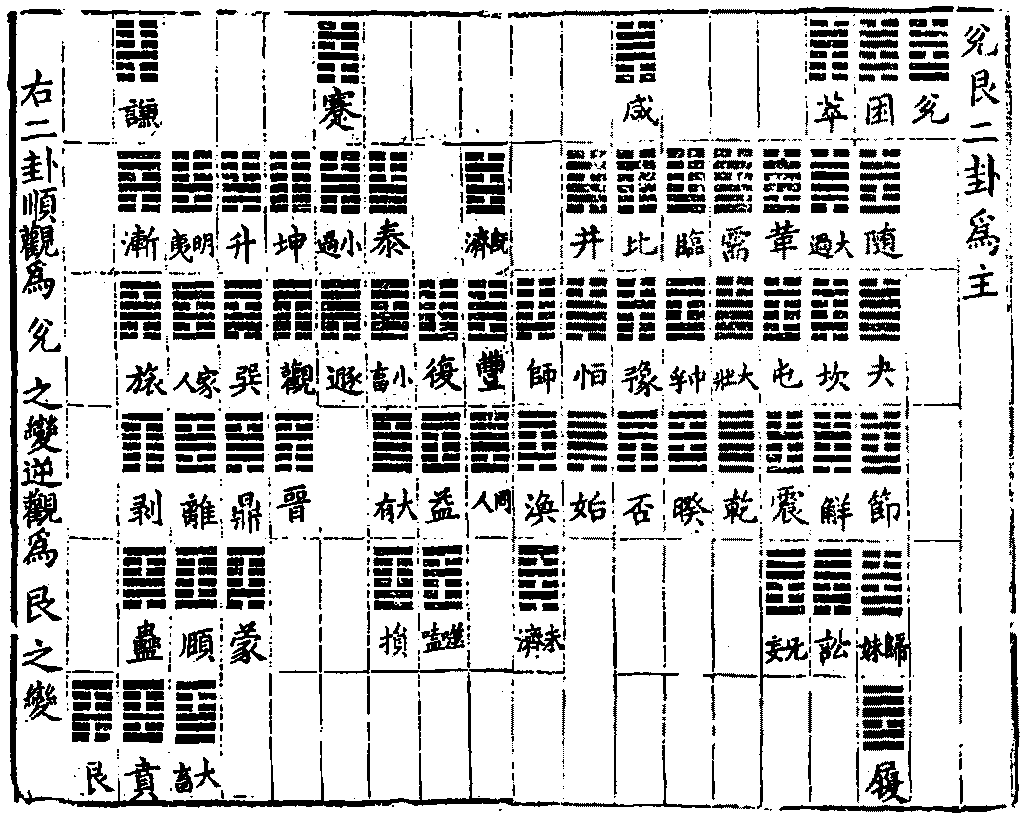 兌艮二卦爲主
兌
困 随 夬 節 歸妹 履
萃 大過 坎 解 訟
革 屯 震 无妄
需 大壯 乾
臨 中孚 睽
咸 比 豫 否
井 恒 姤
師 渙 未濟
既濟 豐 同人
復 益 噬嗑
泰 小畜 大有 損
蹇 小過 遯
坤 觀 晉
升 巽 鼎 蒙
明夷 家人 離 頤 大畜
謙 漸 旅 剥 蠱 賁
艮
右二卦順觀爲兌之變逆觀爲艮之變